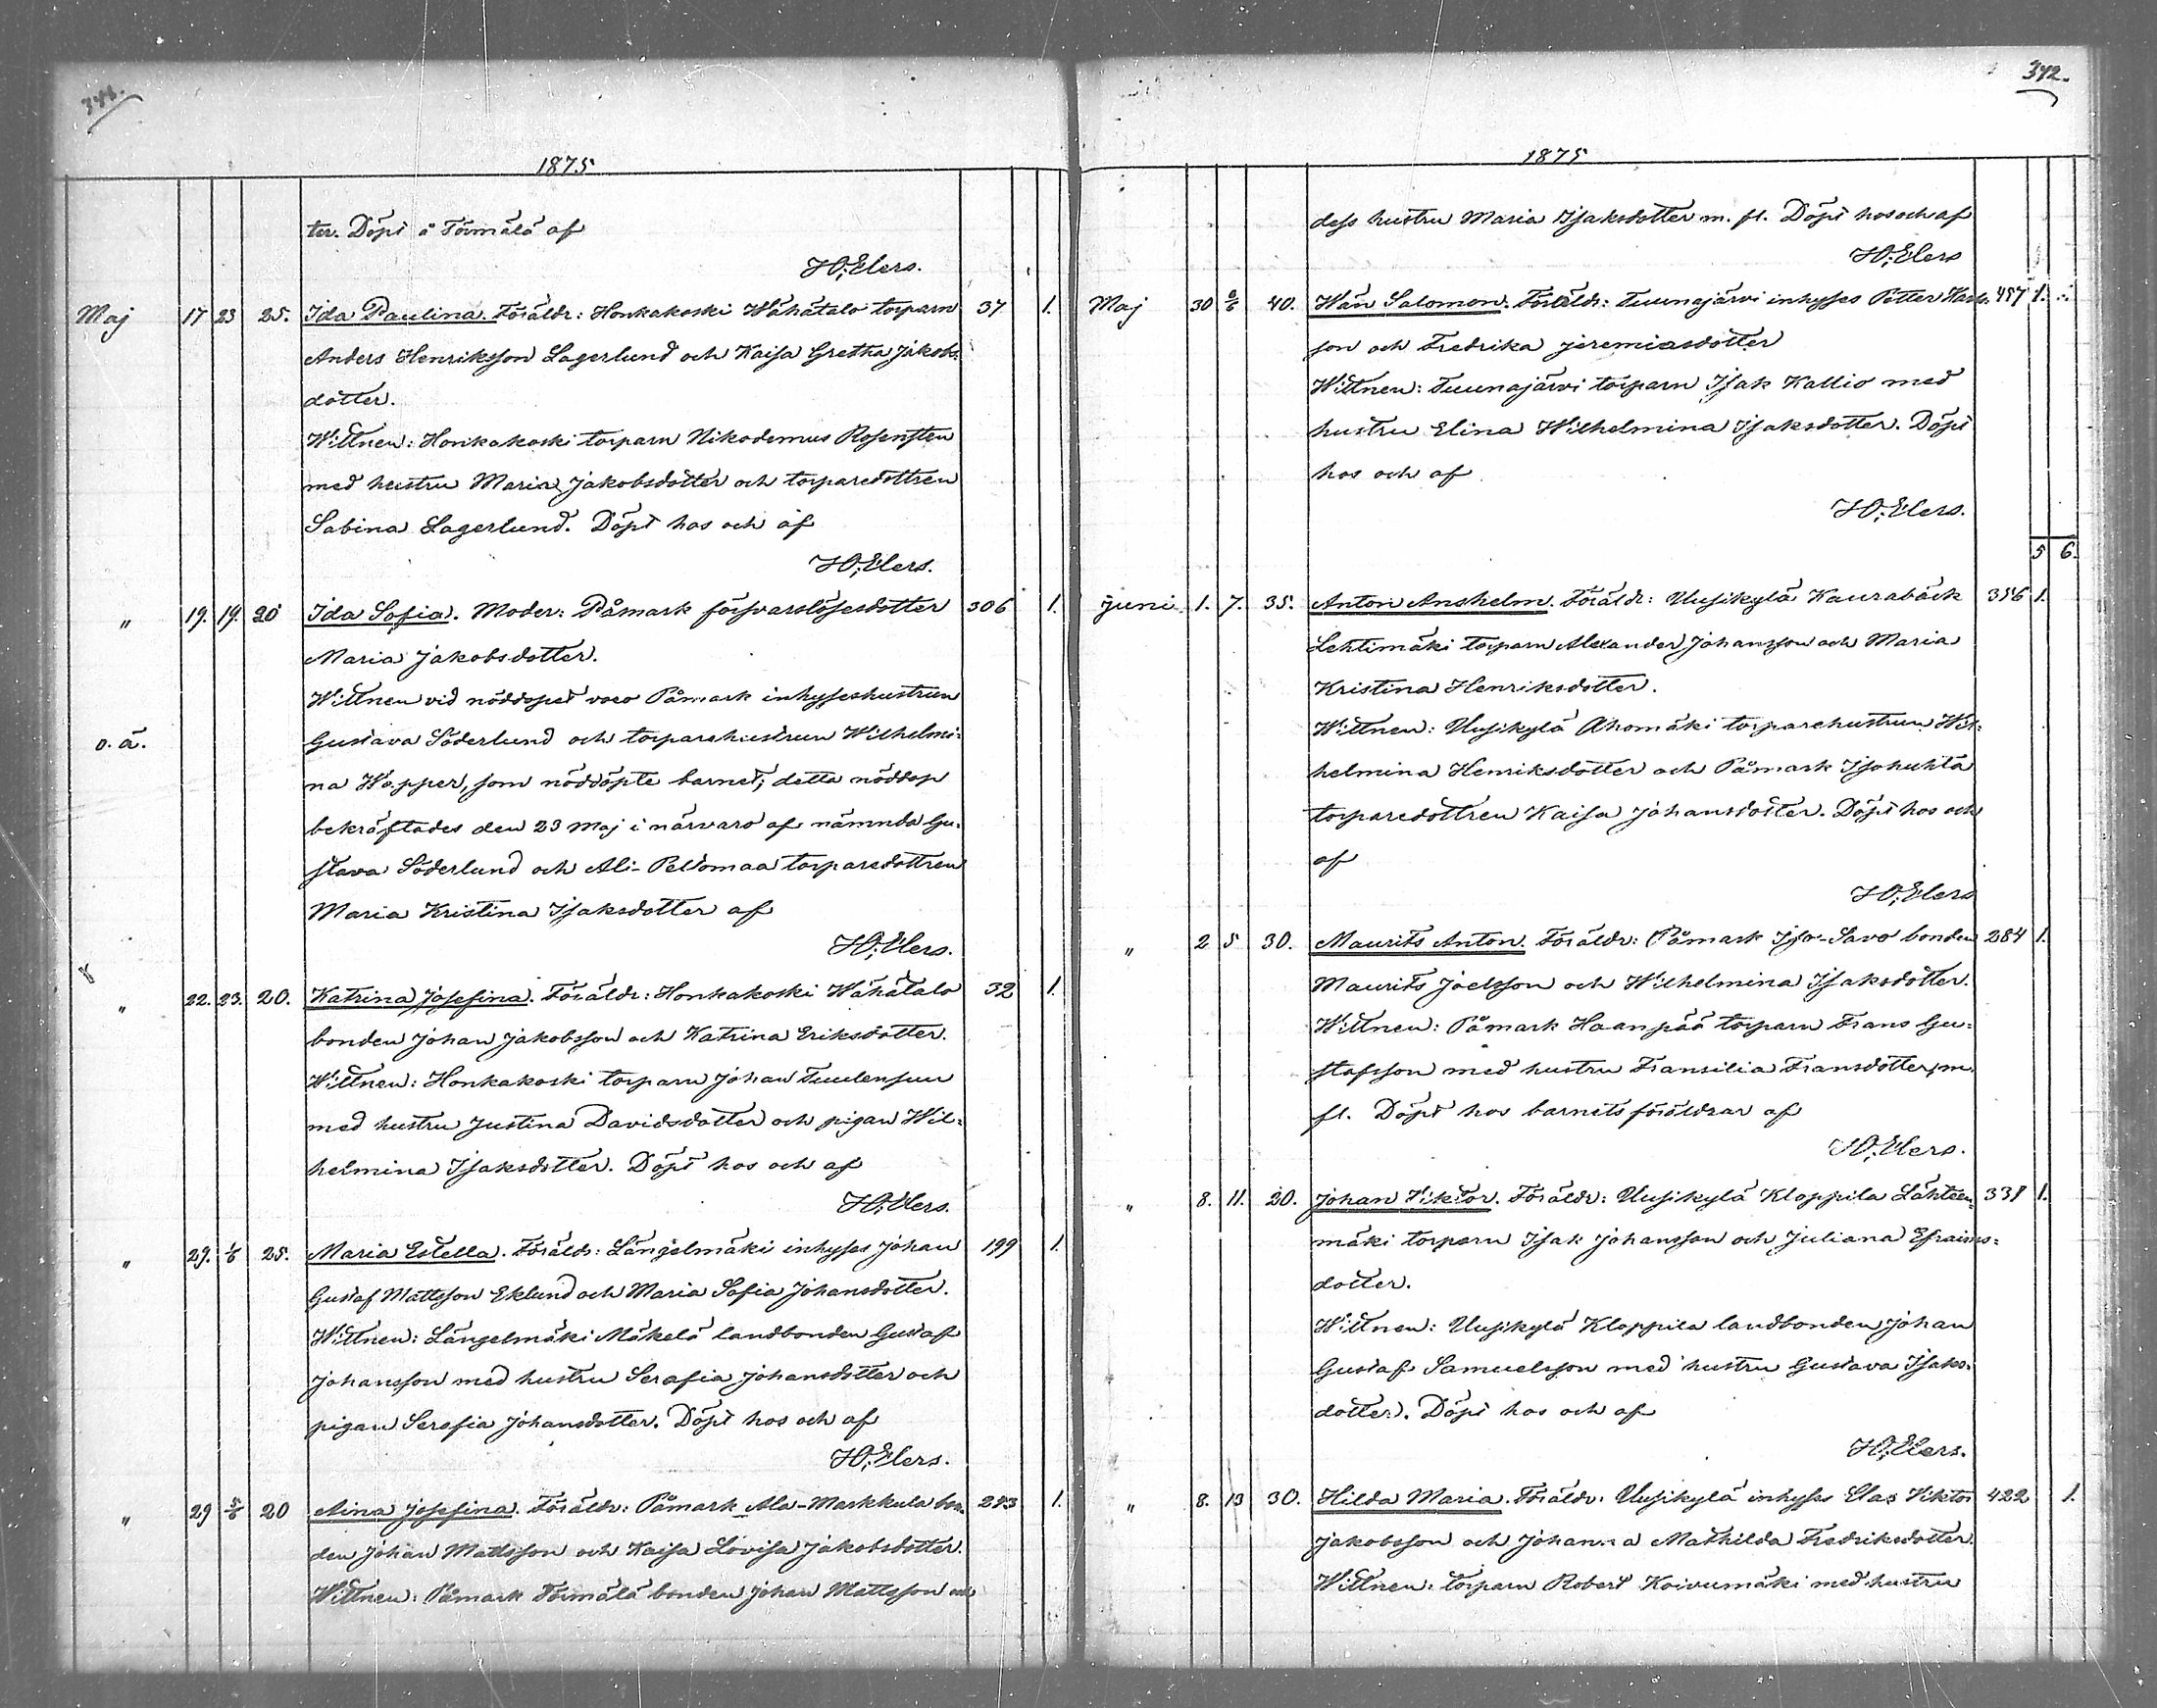 341.
1875
ter. Döpt å Törmälä af
H. O. Elers.
Maj 17 23 25. Ida Paulina. Föräldr: Honkakoski Wähätalo torparn 37 1.
Anders Henriksson Lagerlund och Kaisa Gretha Jakobs-
dotter.
Wittnen: Honkakoski torparn Nikodemus Rosensten
med hustru Maria Jakobsdotter och torparedottren
Sabina Lagerlund. Döpt hos och af
H. O. Elers.
" 19. 19. 20 Ida Sofia. Moder: Påmark försvarslösesdotter 306 1.
Maria Jakobsdotter.
Wittnen vid nöddopet voro Påmark inhyseshustrun
o. ä. Gustava Söderlund och torparehustrun Wilhelmi-
na Wapper, som nöddöpte barnet; detta nöddop
bekräftades den 23 Maj i närvaro af nämnda Gu-
stava Söderlund och Ali-Peltomaa torparedottren
Maria Kristina Isaksdotter af
H. O. Elers.
" 22. 23. 20. Katrina Josefina. Föräldr: Honkakoski Wähätalo 32 1.
bonden Johan Jakobsson och Katrina Eriksdotter.
Wittnen: Honkakoski torparn Johan Tuulensuu
med hustru Justina Davidsdotter och pigan Wil-
helmina Isaksdotter. Döpt hos och af
H. O. Elers.
" 29. 1/6 25. Maria Estella. Föräldr: Längelmäki inhyses Johan 199 1.
Gustaf Mattsson Eklund och Maria Sofia Johansdotter.
Wittnen: Längelmäki Mäkelä landbonden Gustaf
Johansson med hustru Serafia Johansdotter och
pigan Serafia Johansdotter. Döpt hos och af
H. O. Elers.
" 29 5/6 20 Aina Josefina. Föräldr: Påmark Ala-Markkula bon- 283 1.
den Johan Mattsson och Kaisa Lovisa Jakobsdotter.
Wittnen: Påmark Törmälä bonden Johan Mattsson och
342.
1875
dess hustru Maria Isaksdotter m. fl. Döpt hos och af
H. O. Elers
Maj 30 6/6 40. Wän Salomon. Föräldr: Tuunajärvi inhyses Petter Karls- 457 1.
son och Fredrika Jeremiasdotter
Wittnen: Tuunajärvi torparn Isak Kallio med
hustru Elina Wilhelmina Isaksdotter. Döpt
hos och af
H. O. Elers.
5 6.
Juni 1. 7. 35. Anton Anshelm. Föräldr: Uusikylä Kaurabäck 356 1.
Lehtimäki torparn Alexander Johansson och Maria
Kristina Henriksdotter.
Wittnen: Uusikylä Ahomäki torparehustrun Wil-
helmina Henriksdotter och Påmark Isohuhta
torparedottren Kaisa Johansdotter. Döpt hos och
af
H. O. Elers
" 2 5 30. Maurits Anton. Föräldr: Påmark Iso-Savo bonden 284 1.
Maurits Joelsson och Wilhelmina Isaksdotter.
Wittnen: Påmark Haanpää torparn Frans Gu-
stafsson med hustru Fransilia Fransdotter, m.
fl. Döpt hos barnets föräldrar af
H. O. Elers.
" 8. 11. 20. Johan Viktor. Föräldr: Uusikylä Kloppila Lähteen- 331 1.
mäki torparn Isak Johansson och Juliana Efraims-
dotter.
Wittnen: Uusikylä Kloppila landbonden Johan
Gustaf Samuelsson med hustru Gustava Isaks-
dotter. Döpt hos och af
H. O. Elers.
" 8. 13 30. Hilda Maria. Föräldr: Uusikylä inhyses Elas Viktor 422 1.
Jakobsson och Johanna Mathilda Fredriksdotter.
Wittnen: torparn Robert Koivumäki med hustru